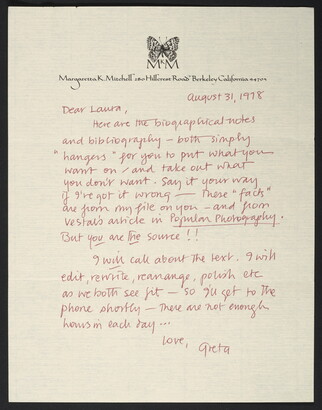 MKM
Margaretta K. Mitchell 280 Hillcrest Road Berkeley California 94705
August 31, 1978
Dear Laura,
Here are the biographical notes
and bibliography — both simply
"hangers" for you to put what you
want on / and take out what
you don't want. Say it your way
if I've got it wrong — These "facts"
are from my file on you — and from
Vestal's article in Popular Photography.
But you are the source!!
I will call about the text. I will
edit, rewrite, rearrange, polish etc
as we both see fit — so I'll get to the
phone shortly — there are not enough
hours in each day...
Love,
Greta